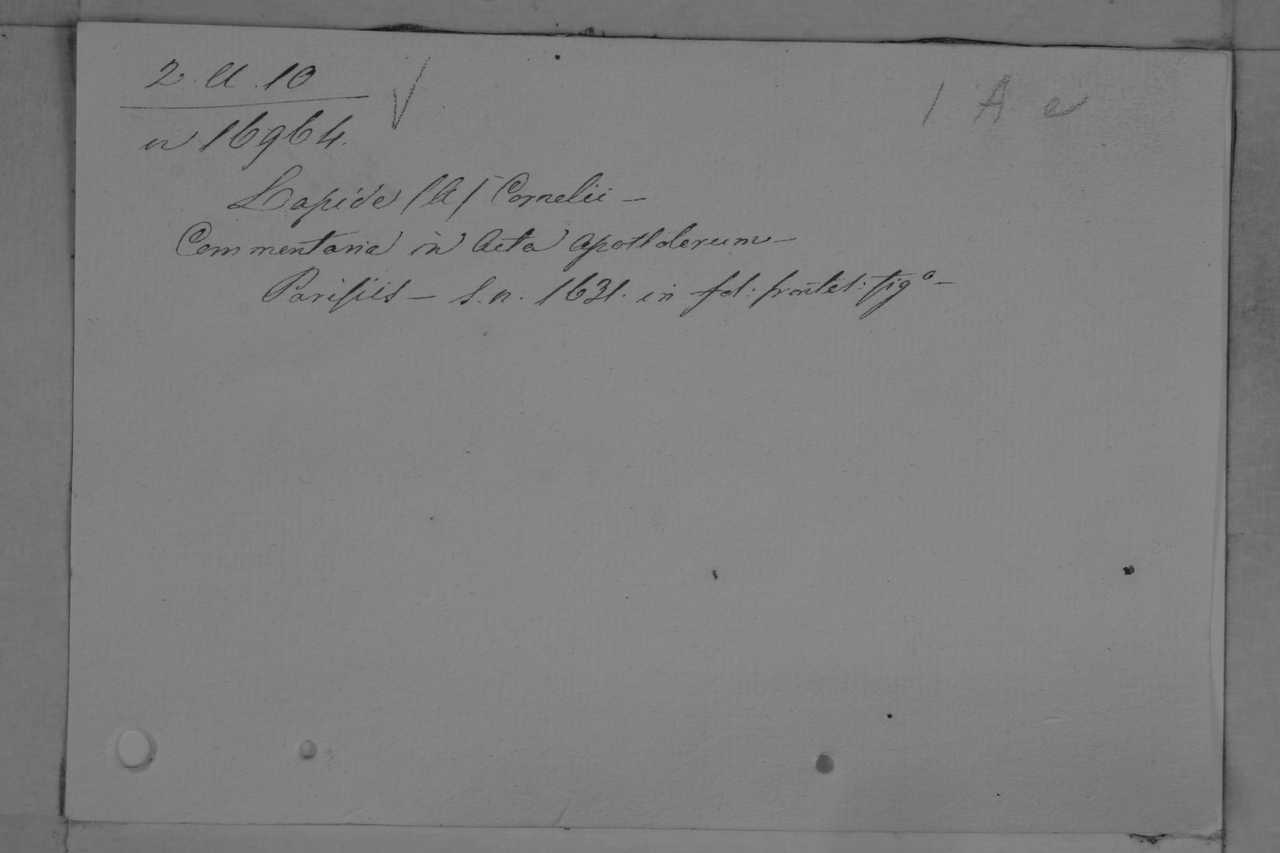 2. A. 10
1 A e
n 16964.
Lapide (A) Cornelii —
Commentaria in Acta Apostolorum —
Parisiis — s. n. 1631. in fol: frontet: figº —